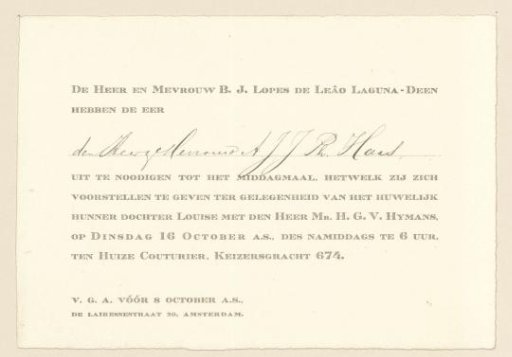 De Heer en Mevrouw B. J. Lopes de Leão Laguna-Deen
hebben de eer
den Heer & Mevrouw A J J R. Haas
uit te noodigen tot het middagmaal, hetwelk zij zich
voorstellen te geven ter gelegenheid van het huwelijk
hunner dochter Louise met den Heer Mr. H. G. V. Hymans,
op Dinsdag 16 October a.s., des namiddags te 6 uur,
ten Huize Couturier, Keizersgracht 674.
V. G. A. vóór 8 October a.s.,
de Lairessestraat 20, Amsterdam.